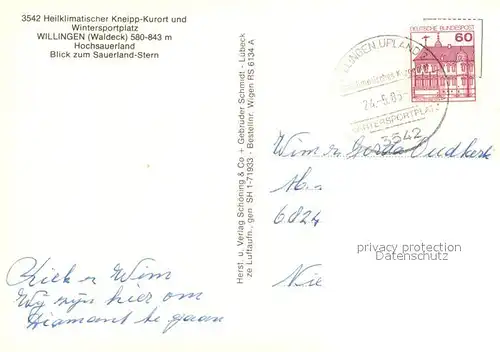 3542 Heilklimatischer Kneipp-Kurort und
Wintersportplatz
WILLINGEN (Waldeck) 580-843 m
Hochsauerland
Blick zum Sauerland-Stern
Herst. u. Verlag Schöning & Co + Gebrüder Schmidt - Lübeck
ze Luftaufn., gen SH 1-71933 · Bestellnr. Wigen RS 6134 A
DEUTSCHE BUNDESPOST
60
WILLINGEN, UPLAND
Heilklimatischer Kurort
24.-6.85-
WINTERSPORTPLATZ
3542
Wim
6824
privacy protection
Datenschutz
Nie
Wim
Wij zijn hier om
Diamant te gaan